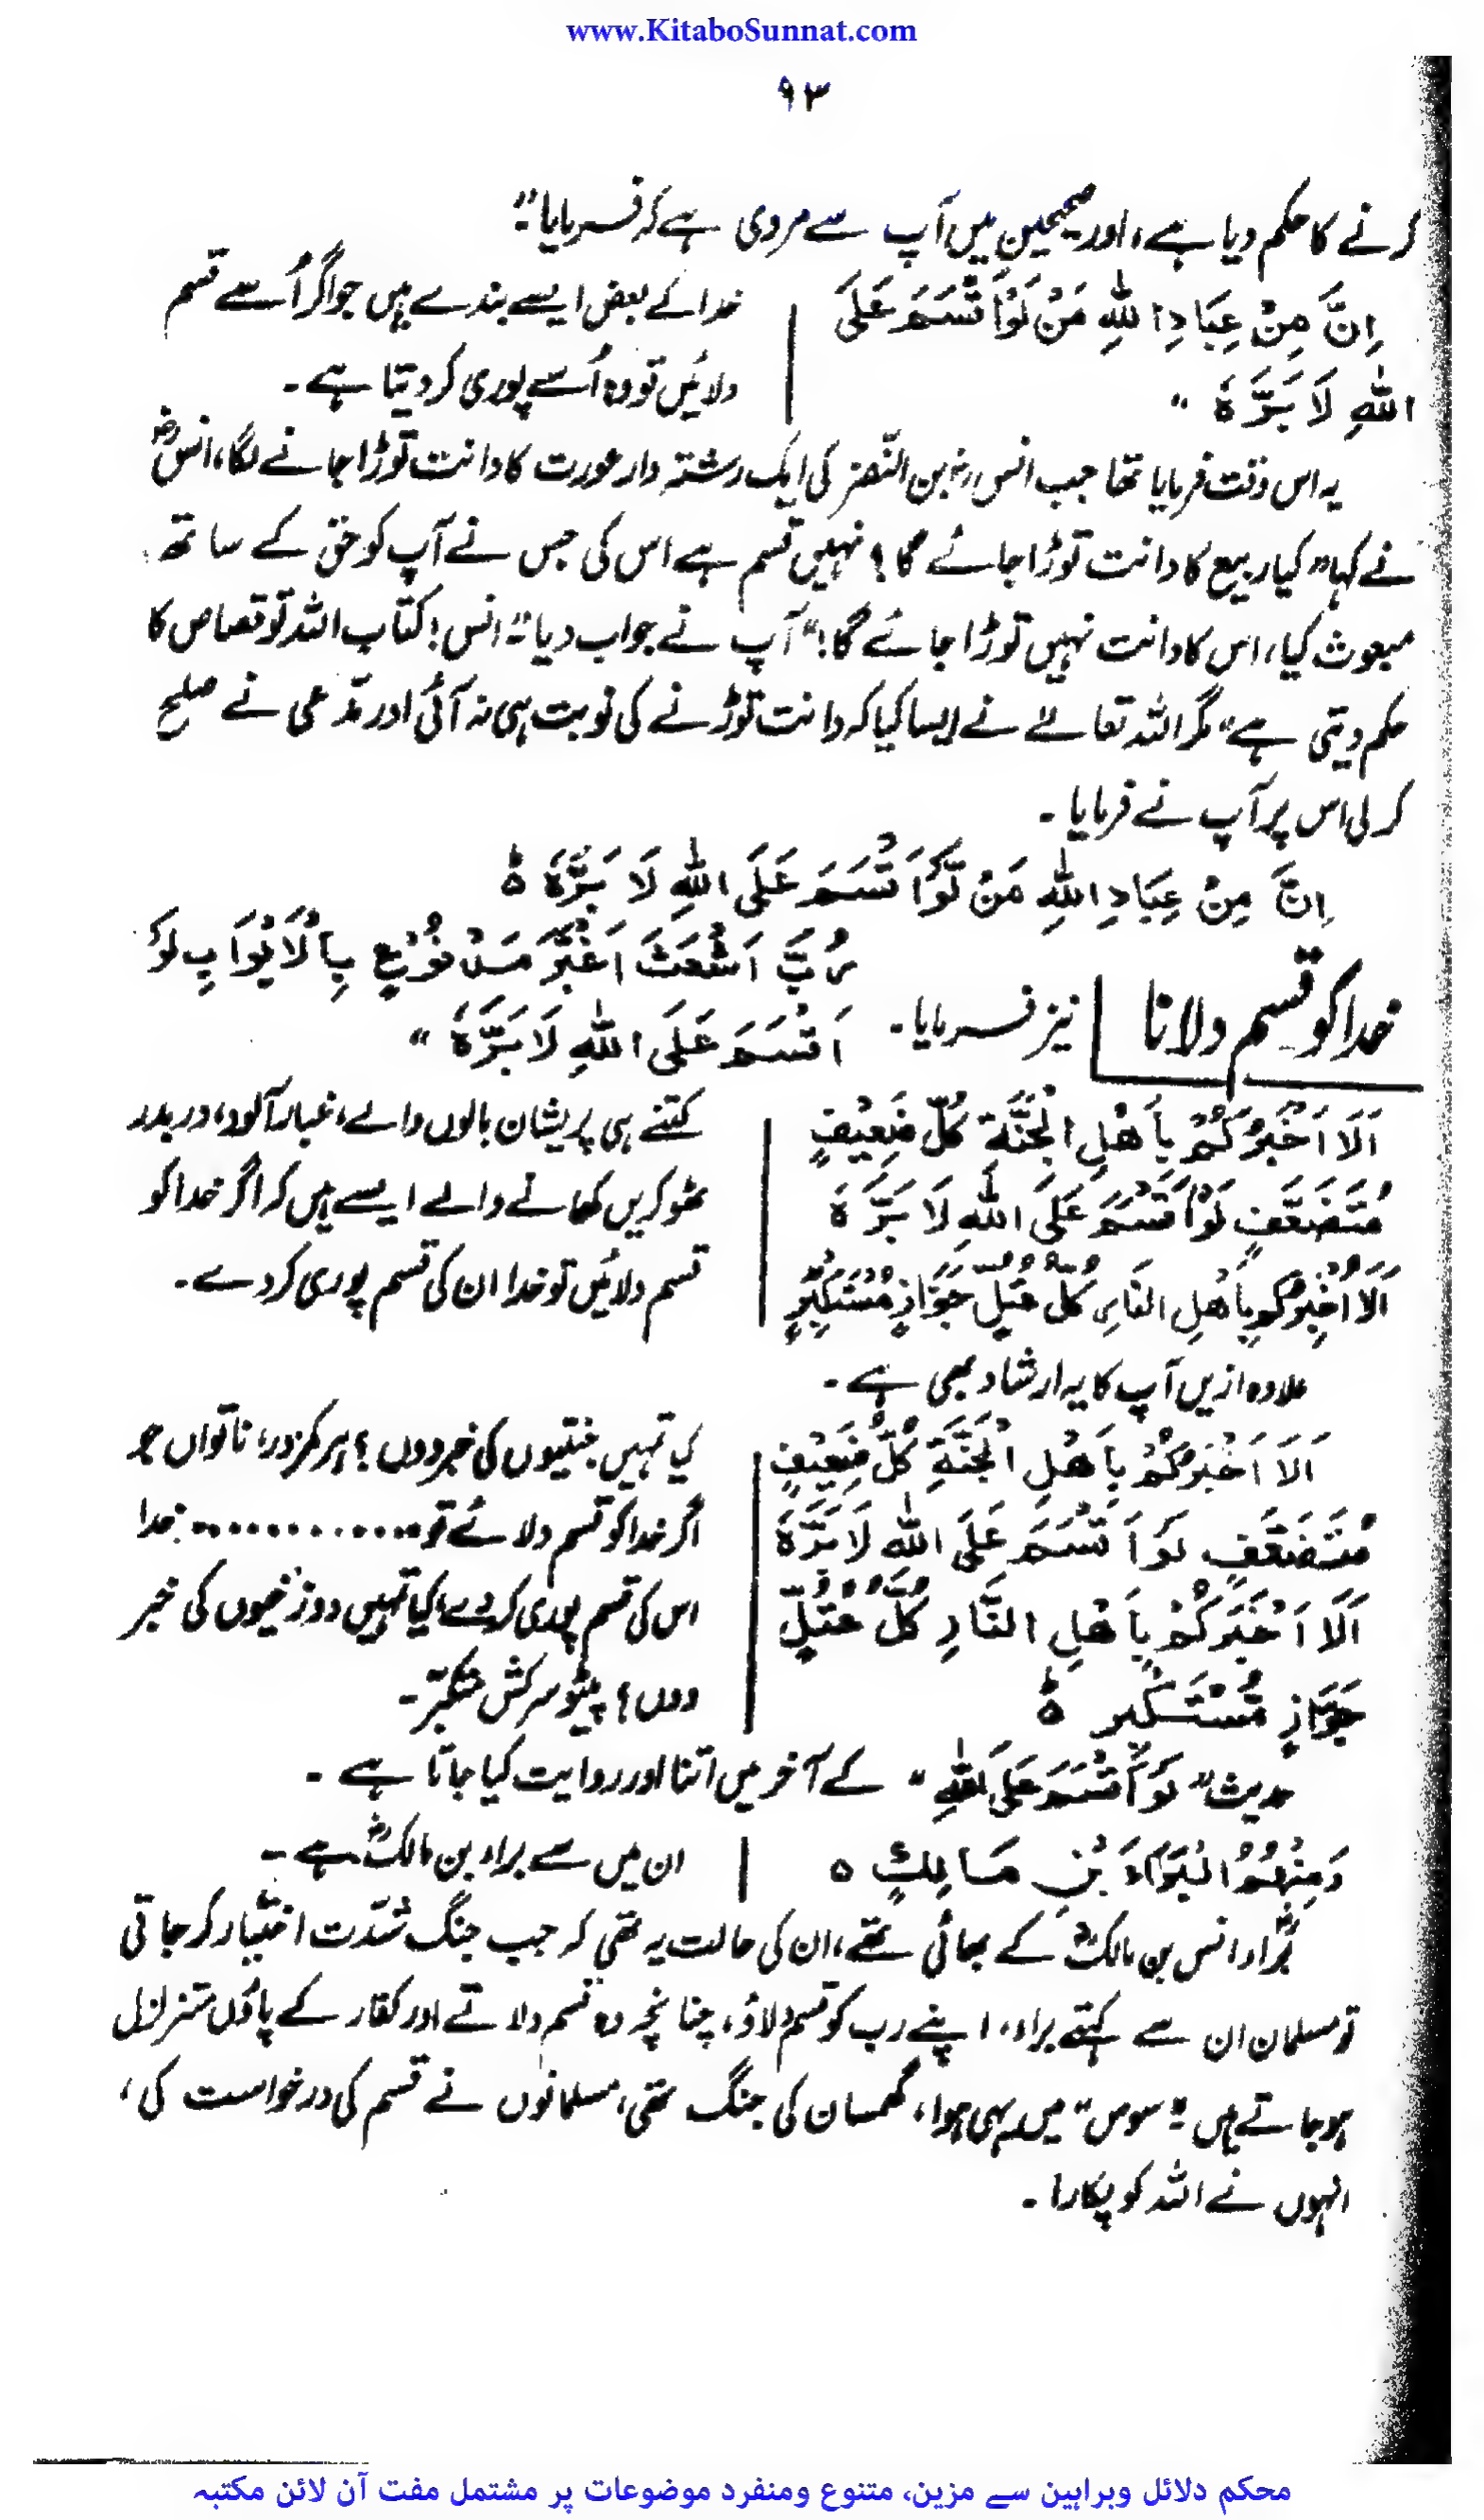 www.KitaboSunnat.com
۹۳
کرنے کا حکم دیا ہے، اور صحیحین میں آپ سے مروی ہے کہ فرمایا "۔
اِنَّ مِنْ عِبَادِ اللهِ مَنْ لَوْ اَقْسَمَ عَلَى
اللهِ لَاَبَرَّهٗ "
خدا کے بعض ایسے بندے ہیں جو اگر اُسے قسم
دلائیں تو وہ اُسے پوری کر دیتا ہے۔
یہ اس وقت فرمایا تھا جب انس رضؓ بن النضر کی ایک رشتہ دار عورت کا دانت توڑا جانے لگا، انسؓ
نے کہا "کیا ربیع کا دانت توڑا جائے گا؟ نہیں قسم ہے اس کی جس نے آپ کو حق کے ساتھ
مبعوث کیا، اس کا دانت نہیں توڑا جائے گا!" آپ نے جواب دیا "انس! کتاب اللہ تو قصاص کا
حکم دیتی ہے" مگر اللہ تعالےٰ نے ایسا کیا کہ دانت توڑنے کی نوبت ہی نہ آئی اور مدّعی نے صلح
کر لی اس پر آپ نے فرمایا۔
اِنَّ مِنْ عِبَادِ اللهِ مَنْ لَّوْ اَقْسَمَ عَلَى اللهِ لَاَبَرَّهٗ ہ
خدا کو قسم دلانا
نیز فرمایا۔
رُبَّ اَشْعَثَ اَغْبَرَ مَدْفُوْعٍ بِالْاَبْوَابِ لَوْ
اَقْسَمَ عَلَى اللهِ لَاَبَرَّهٗ "
اَلَا اُخْبِرُكُمْ بِاَهْلِ الْجَنَّةِ كُلُّ ضَعِيْفٍ
مُتَضَعَّفٍ لَوْ اَقْسَمَ عَلَى اللهِ لَاَبَرَّهٗ
اَلَا اُخْبِرُكُمْ بِاَهْلِ النَّارِ كُلُّ عُتُلٍّ جَوَّاظٍ مُسْتَكْبِرٍ
کتنے ہی پریشان بالوں والے، غبار آلود، در بدر
ٹھوکریں کھانے والے ایسے ہیں کہ اگر خدا کو
قسم دلائیں تو خدا ان کی قسم پوری کر دے۔
علاوہ ازیں آپ کا یہ ارشاد بھی ہے۔
اَلَا اُخْبِرُكُمْ بِاَهْلِ الْجَنَّةِ كُلُّ ضَعِيْفٍ
مُتَضَعَّفٍ لَوْ اَقْسَمَ عَلَى اللهِ لَاَبَرَّهٗ
اَلَا اُخْبِرُكُمْ بِاَهْلِ النَّارِ كُلُّ عُتُلٍّ
جَوَّاظٍ مُسْتَكْبِرٍ ہ
کیا تمہیں جنتیوں کی خبر دوں؟ ہر کمزور، ناتواں جو
اگر خدا کو قسم دلائے تو............ خدا
اس کی قسم پوری کر دے، کیا تمہیں دوزخیوں کی خبر
دوں؟ پیٹو سرکش متکبّر۔
حدیث "لَوْ اَقْسَمَ عَلَى اللهِ" کے آخر میں اتنا اور روایت کیا جاتا ہے۔
وَمِنْهُمُ الْبَرَآءُ بْنُ مَالِكٍ ہ
ان میں سے براء بن مالکؓ ہے۔
برّاء انس بن مالکؓ کے بھائی تھے، ان کی حالت یہ تھی کہ جب جنگ شدّت اختیار کر جاتی
تو مسلمان ان سے کہتے براء، اپنے رب کو قسم دلاؤ، چنانچہ وہ قسم دلاتے اور کفار کے پاؤں متزلزل
ہو جاتے ہیں۔ "سوس" میں یہی ہوا، گھمسان کی جنگ تھی، مسلمانوں نے قسم کی درخواست کی،
انہوں نے اللہ کو پکارا۔
محکم دلائل وبراہین سے مزین، متنوع ومنفرد موضوعات پر مشتمل مفت آن لائن مکتبہ